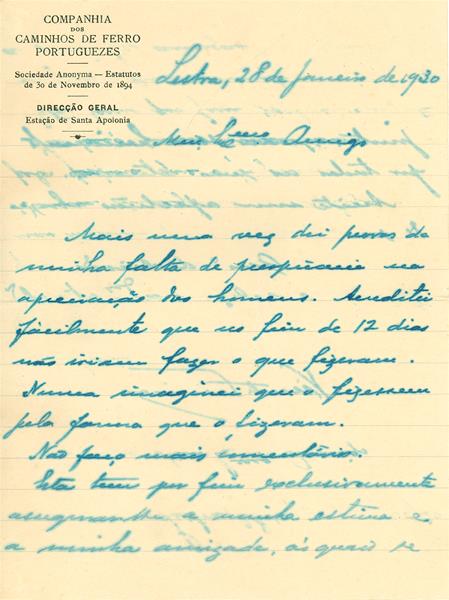 COMPANHIA
DOS
CAMINHOS DE FERRO
PORTUGUEZES
Sociedade Anonyma — Estatutos
de 30 de Novembro de 1894
DIRECÇÃO GERAL
Estação de Santa Apolonia
Lisboa, 28 de Janeiro de 1930
Meu Exmo Amigo
Mais uma vez dei provas da
minha falta de perspicacia na
apreciação dos homens. Acreditei
fácilmente que no fim de 12 dias
não iriam fazer o que fizeram.
Nunca imaginei que o fizessem
pela forma que o fizeram.
Não faço mais comentários.
Esta tem por fim exclusivamente
assegurar-lhe a minha estima e
a minha amizade, ás quaes se